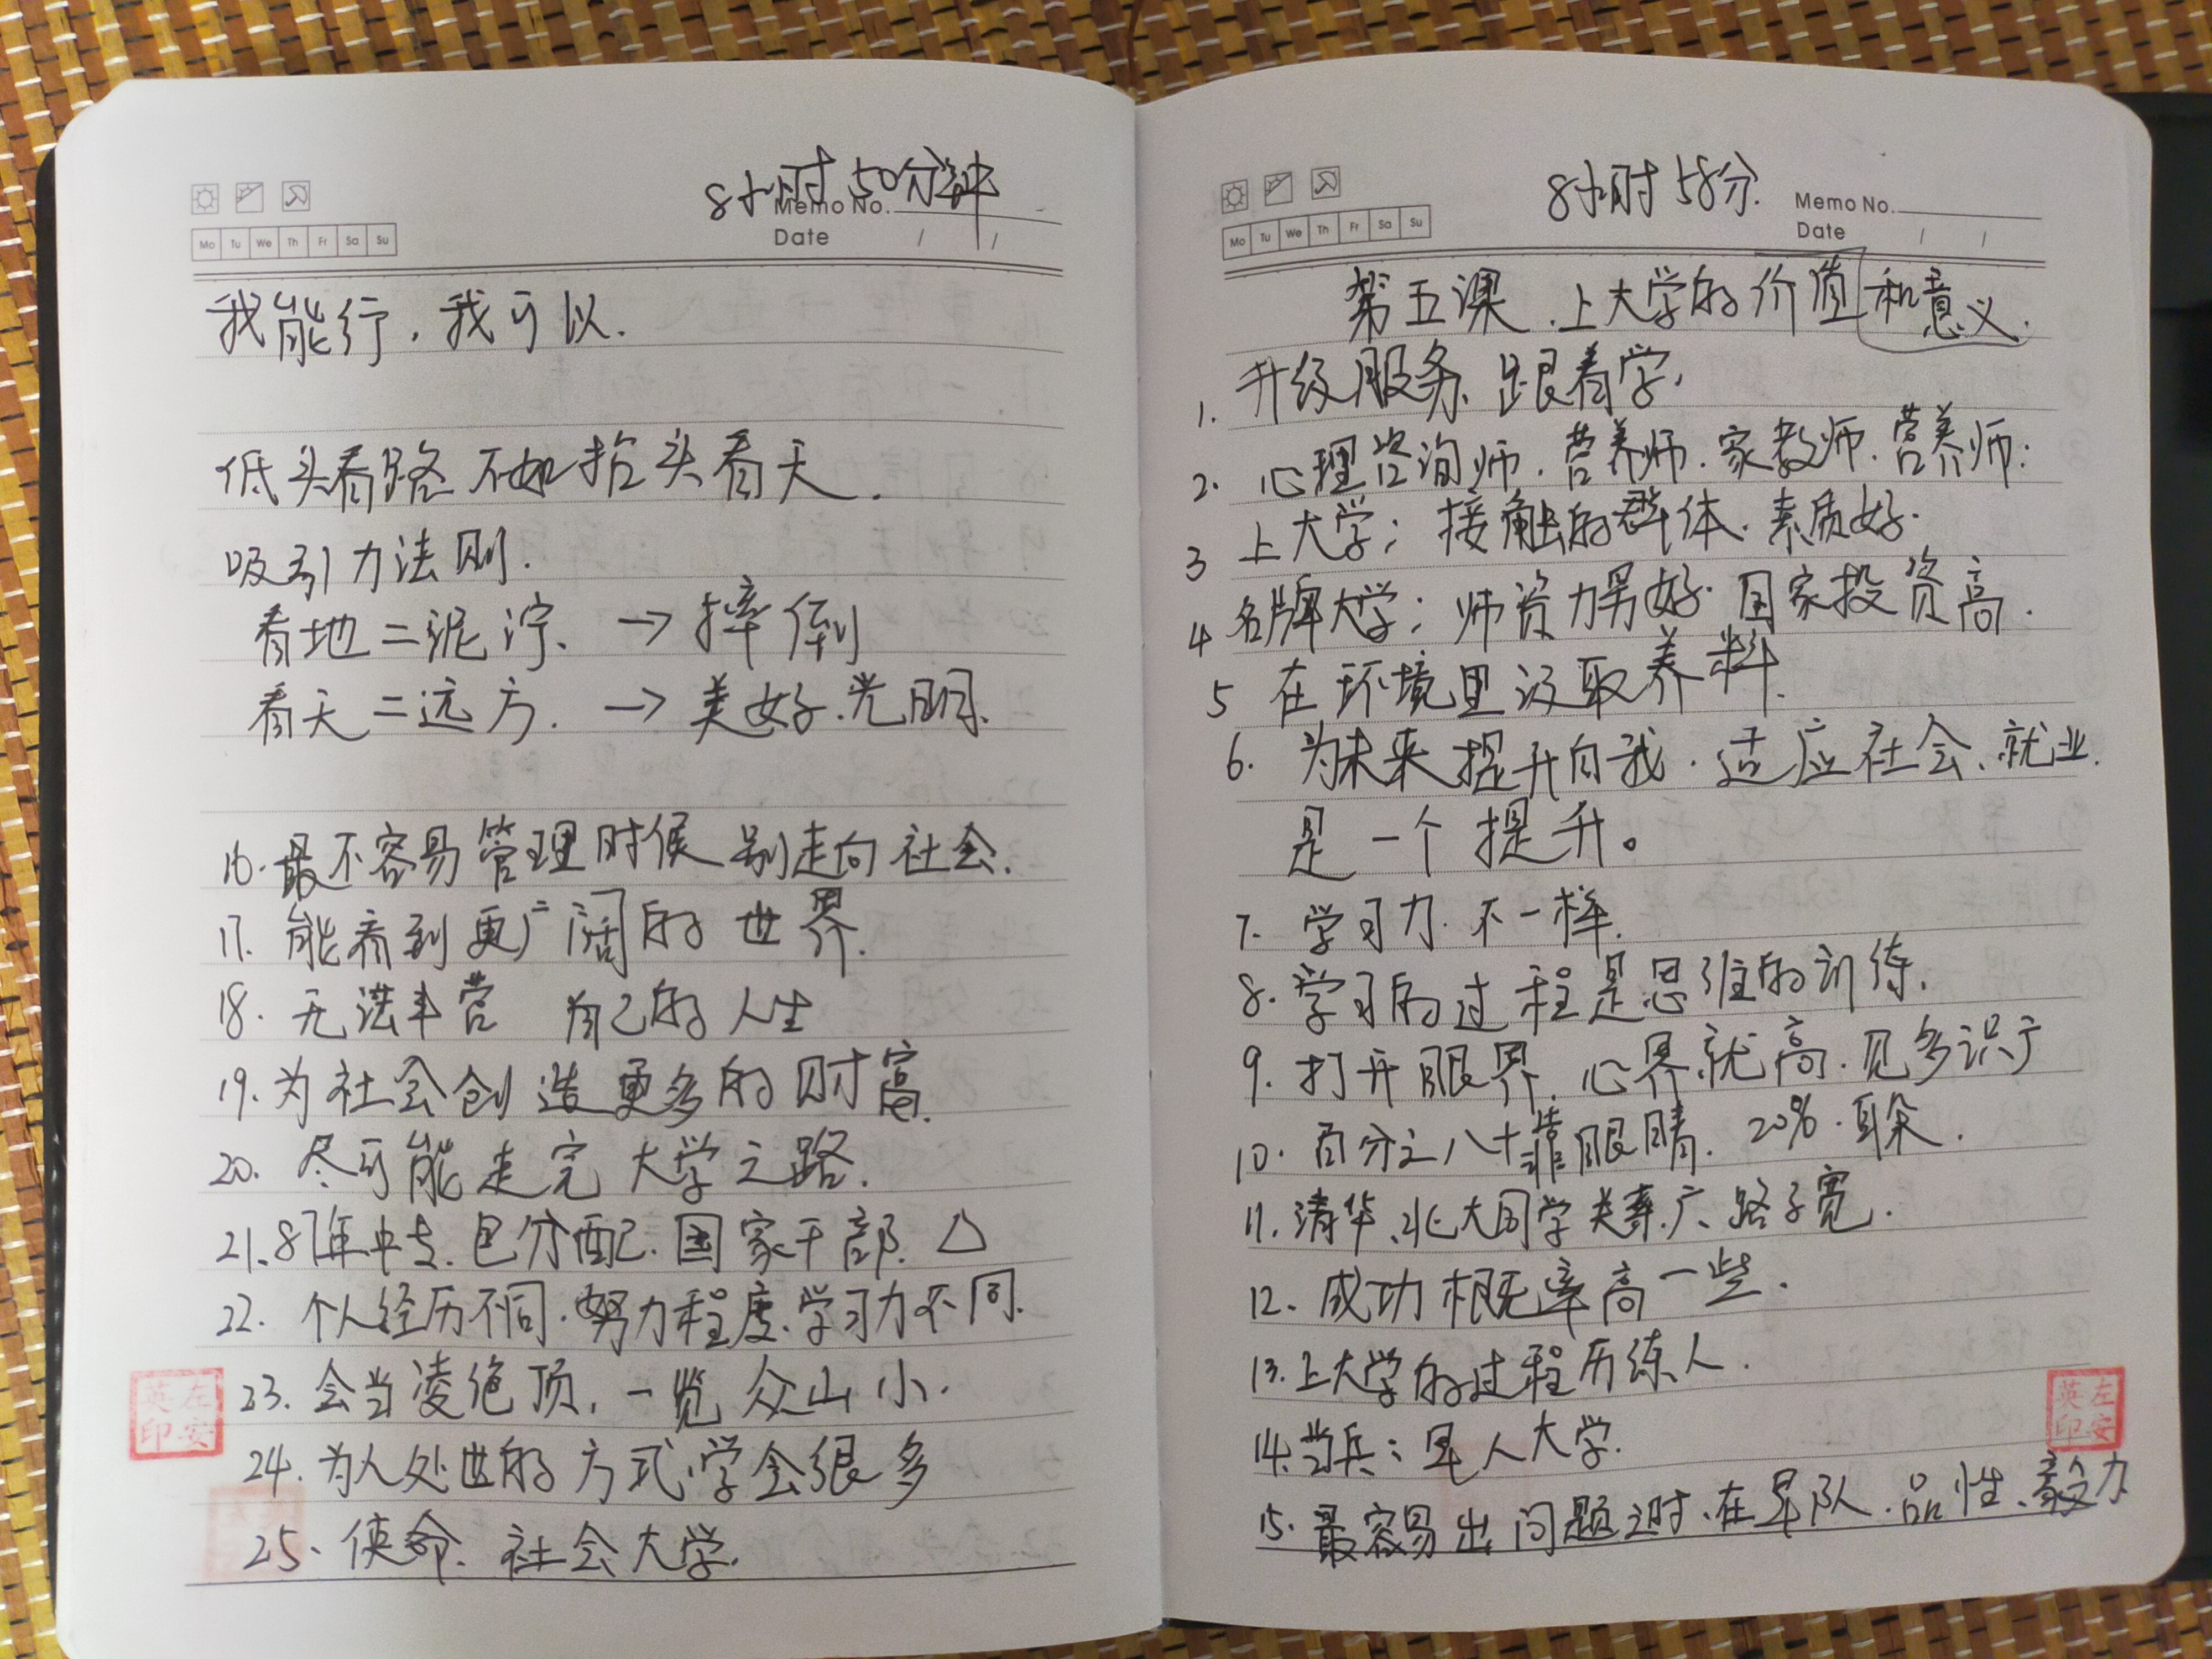 8小时50分钟
Memo No.
Mo Tu We Th Fr Sa Su
Date / /
我能行,我可以.
低头看路 不如抬头看天.
吸引力法则.
看地二泥泞、→摔倒
看天二远方.→美好.光明、
16.最不容易管理时候 别走向社会.
17. 能看到更广阔的世界.
18. 无法丰营 自己的人生
19.为社会创造更多的财富.
20. 尽可能走完大学之路.
21、87年中专.包分配.国家干部.△
22. 个人经历不同.努力程度.学习力不同.
23. 会当凌绝顶,一览众山小.
24. 为人处世的方式、学会很多
25、使命、社会大学.
英左
印安
8小时58分.
Memo No.
Mo Tu We Th Fr Sa Su
Date / /
第五课、上大学的价值和意义.
1. 升级服务、跟着学.
2. 心理咨询师.营养师.家教师.营养师:
3 上大学; 接触的群体.素质好.
4 名牌大学; 师资力男好.国家投资高.
5 在环境里汲取养料.
6. 为未来提升自我.适应社会、就业.
是一个提升。
7. 学习力.不一样.
8. 学习的过程是思维的训练.
9. 打开眼界.心界就高.见多识广
10. 百分之八十靠眼睛. 20%.耳朵.
11. 清华、北大同学关系.广、路子宽.
12. 成功概率高一些.
13.上大学的过程历练人.
14.当兵; 军人大学.
15. 最容易出问题之时、在军队.品性、毅力
英左
印安